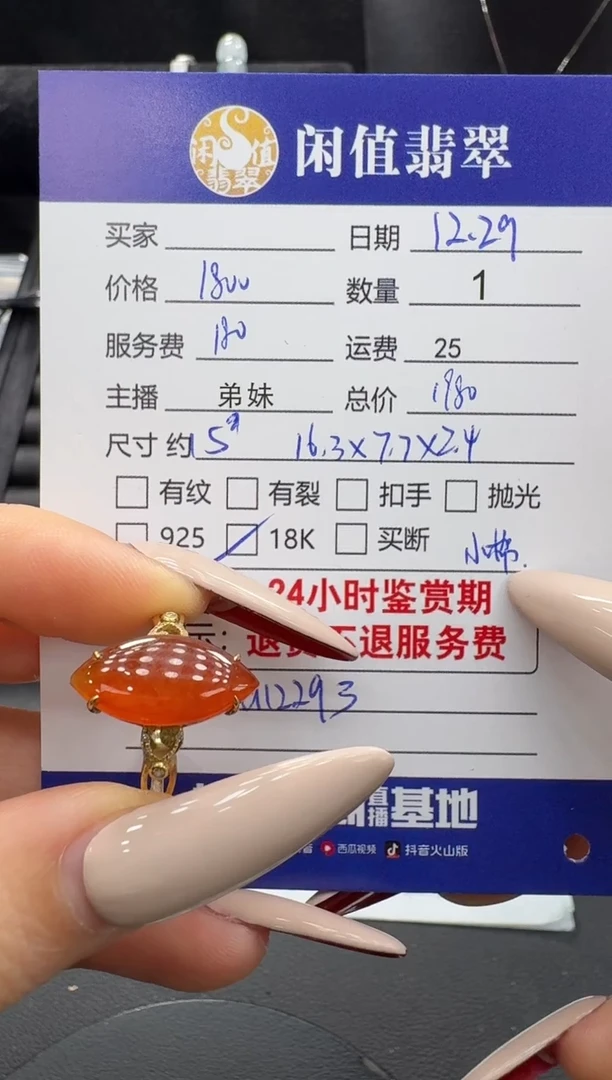 闲值翡翠 闲值翡翠
买家 日期 12.29
价格 1800 数量 1
服务费 180 运费 25
主播 弟妹 总价 1980
尺寸 约 16.3×7.7×2.4
有纹 有裂 扣手 抛光
925 18K 买断
24小时鉴赏期
示: 退货不退服务费
12293
直播基地
西瓜视频 抖音火山版